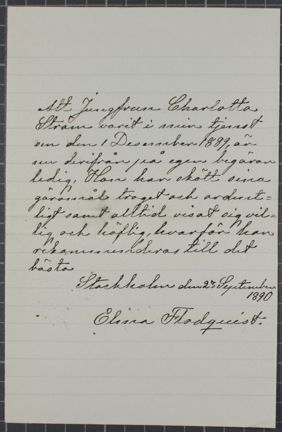 Att Jungfrun Charlotta
Ström varit i min tjenst
om den 1 December 1889, är
nu derifrån på egen begäran
ledig. Hon har skött sina
göromål troget och ordent=
ligt samt alltid visat sig vil=
lig och höflig, hvarför hon
rekommenderas till det
bästa
Stockholm den 23 September
1890
Elina Flodquist.